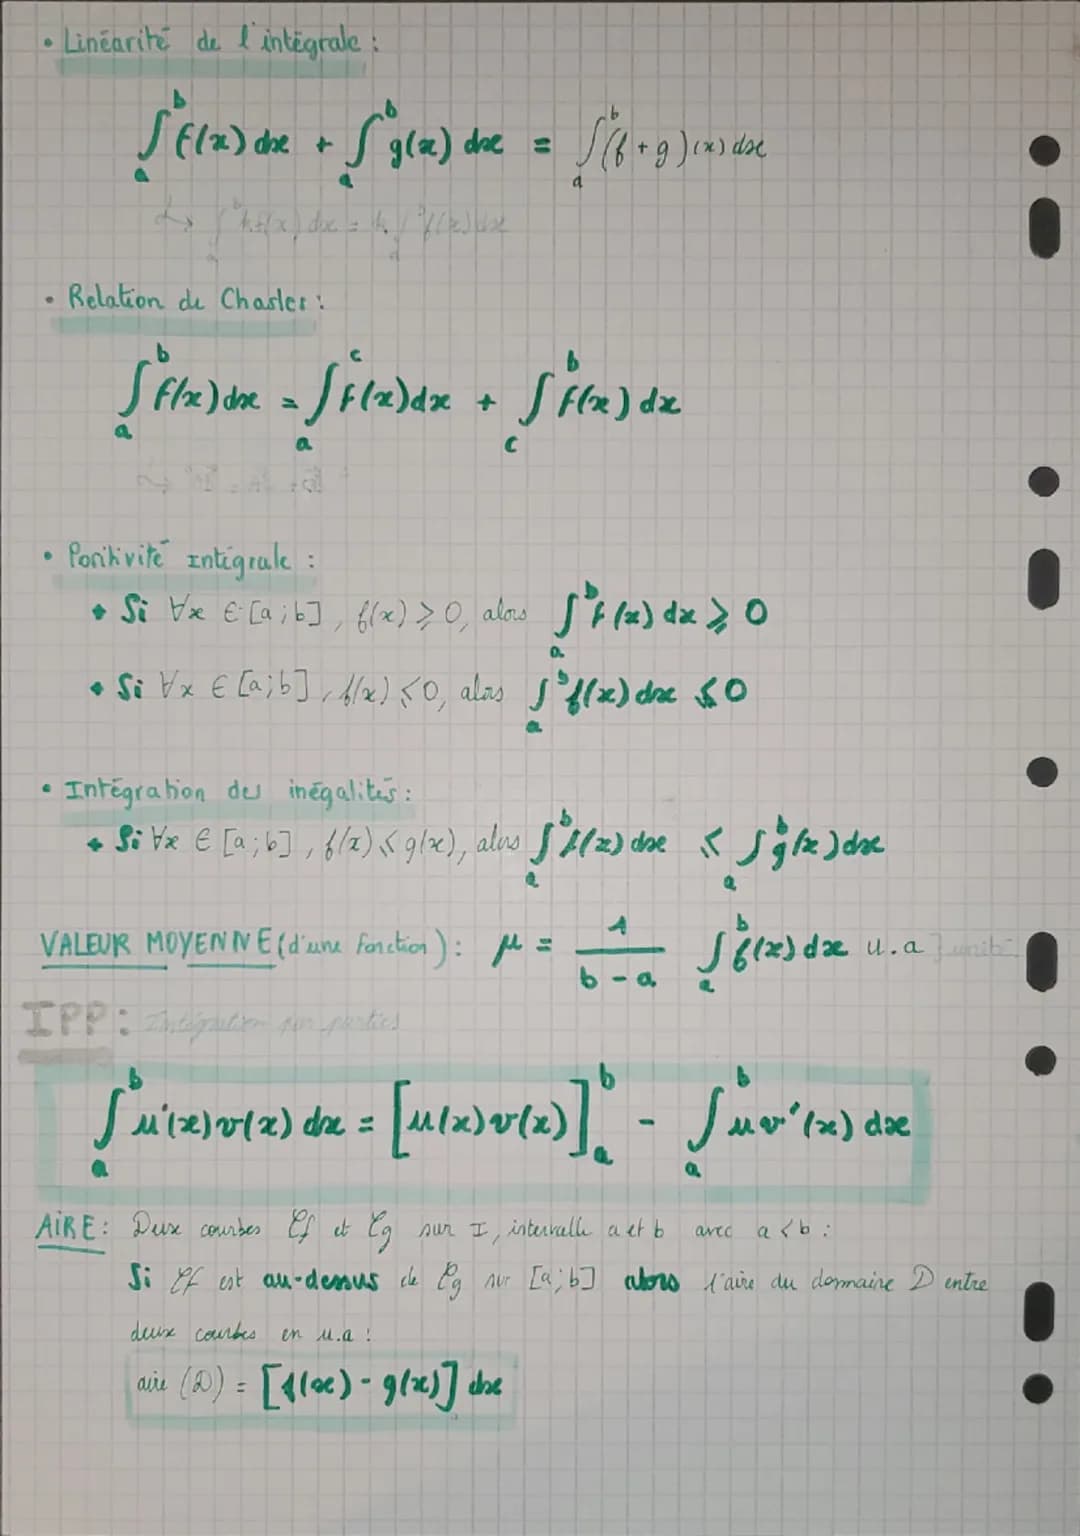 • Linéarité de l'intégrale :
∫_a^b f(x) dx + ∫_a^b g(x) dx = ∫_a^b (f + g)(x) dx
↳ ∫_a^b kf(x) dx = k ∫_a^b f(x) dx
• Relation de Chasles :
∫_a^b f(x) dx = ∫_a^c f(x) dx + ∫_c^b f(x) dx
• Positivité Intégrale :
• Si ∀x ∈ [a;b], f(x) ⩾ 0, alors ∫_a^b f(x) dx ⩾ 0
• Si ∀x ∈ [a;b], f(x) ⩽ 0, alors ∫_a^b f(x) dx ⩽ 0
• Intégration des inégalités :
• Si ∀x ∈ [a;b], f(x) ⩽ g(x), alors ∫_a^b f(x) dx ⩽ ∫_a^b g(x) dx
VALEUR MOYENNE (d'une fonction) : μ = 1/(b-a) ∫_a^b f(x) dx u.a } unité
IPP : Intégration par parties
∫_a^b u'(x) v(x) dx = [u(x) v(x)]_a^b - ∫_a^b u v'(x) dx
AIRE : Deux courbes Cf et Cg sur I, intervalle a et b avec a < b :
Si Cf est au-dessus de Cg sur [a;b] alors l'aire du domaine D entre
deux courbes en u.a :
aire (D) = [f(x) - g(x)] dx